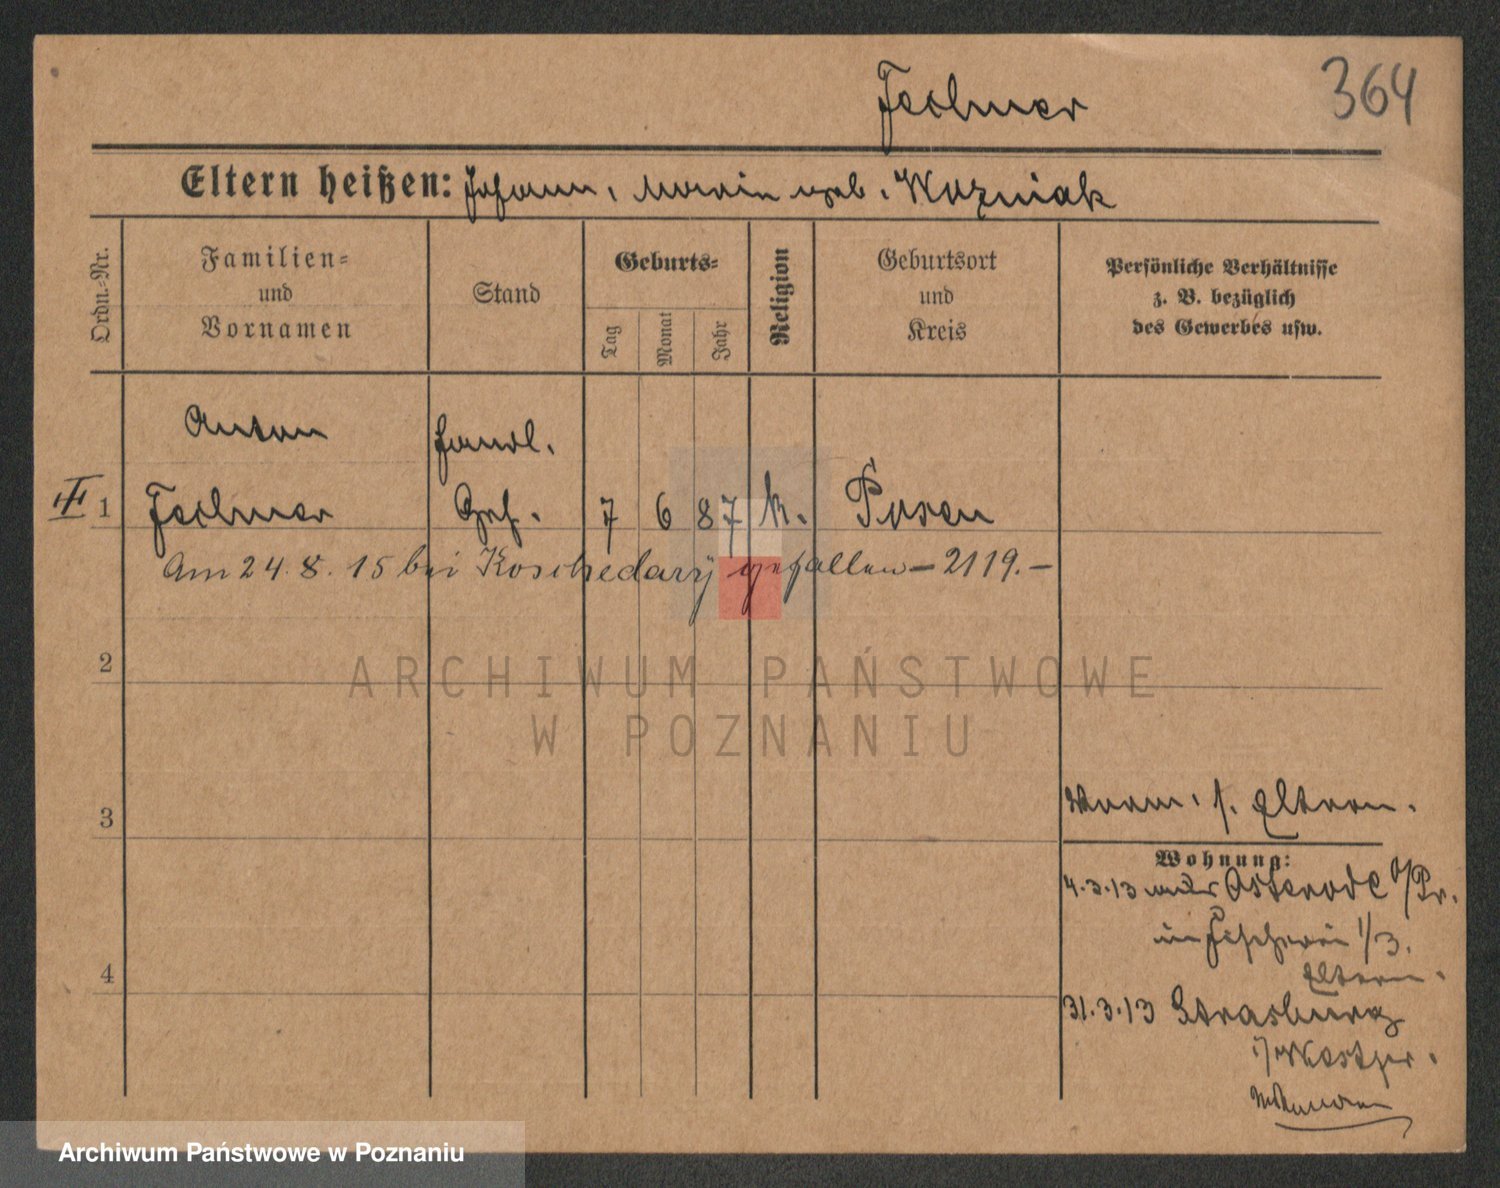 364
Folmer
Eltern heißen: Johann, Maria geb. Wozniak
Ordn.-Nr.
Familien-
und
Vornamen
Stand
Geburts-
Tag
Monat
Jahr
Religion
Geburtsort
und
Kreis
Persönliche Verhältnisse
z. B. bezüglich
des Gewerbes usw.
Anton
Handl.
1
Folmer
Geh.
7
6
87
k.
Posen
Am 24.8.15 bei Koschedary gefallen – 2119. –
2
3
4
s. Eltern.
Wohnung:
4.3.13 Osterode O/Pr.
1/3.
Eltern.
31.3.13 Strasburg
i/Westpr.
ARCHIWUM PAŃSTWOWE
W POZNANIU
Archiwum Państwowe w Poznaniu